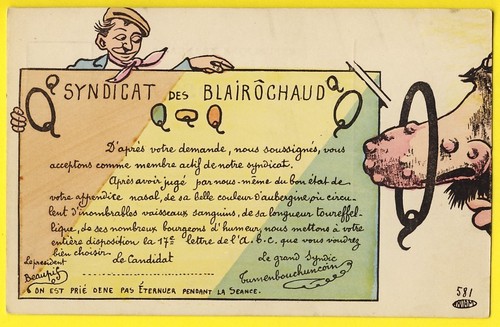 SYNDICAT DES BLAIRÔCHAUD
D'après votre demande, nous soussignés, vous
acceptons comme membre actif de notre syndicat.
Après avoir jugé par nous-même du bon état de
votre appendice nasal, de sa belle couleur d'aubergine où circu-
lent d'inombrables vaisseaux sanguins, de sa longueur toureiffel-
lique, de ses nombreux bourgeons d'humeur, nous mettons à votre
entière disposition la 17e lettre de l'A.B.C. que vous voudrez
bien choisir.
Le président
Le Candidat
Le grand Syndic
Beaupif
Tumenbouchuncoin
ON EST PRIÉ DE NE PAS ÉTERNUER PENDANT LA SEANCE.
581